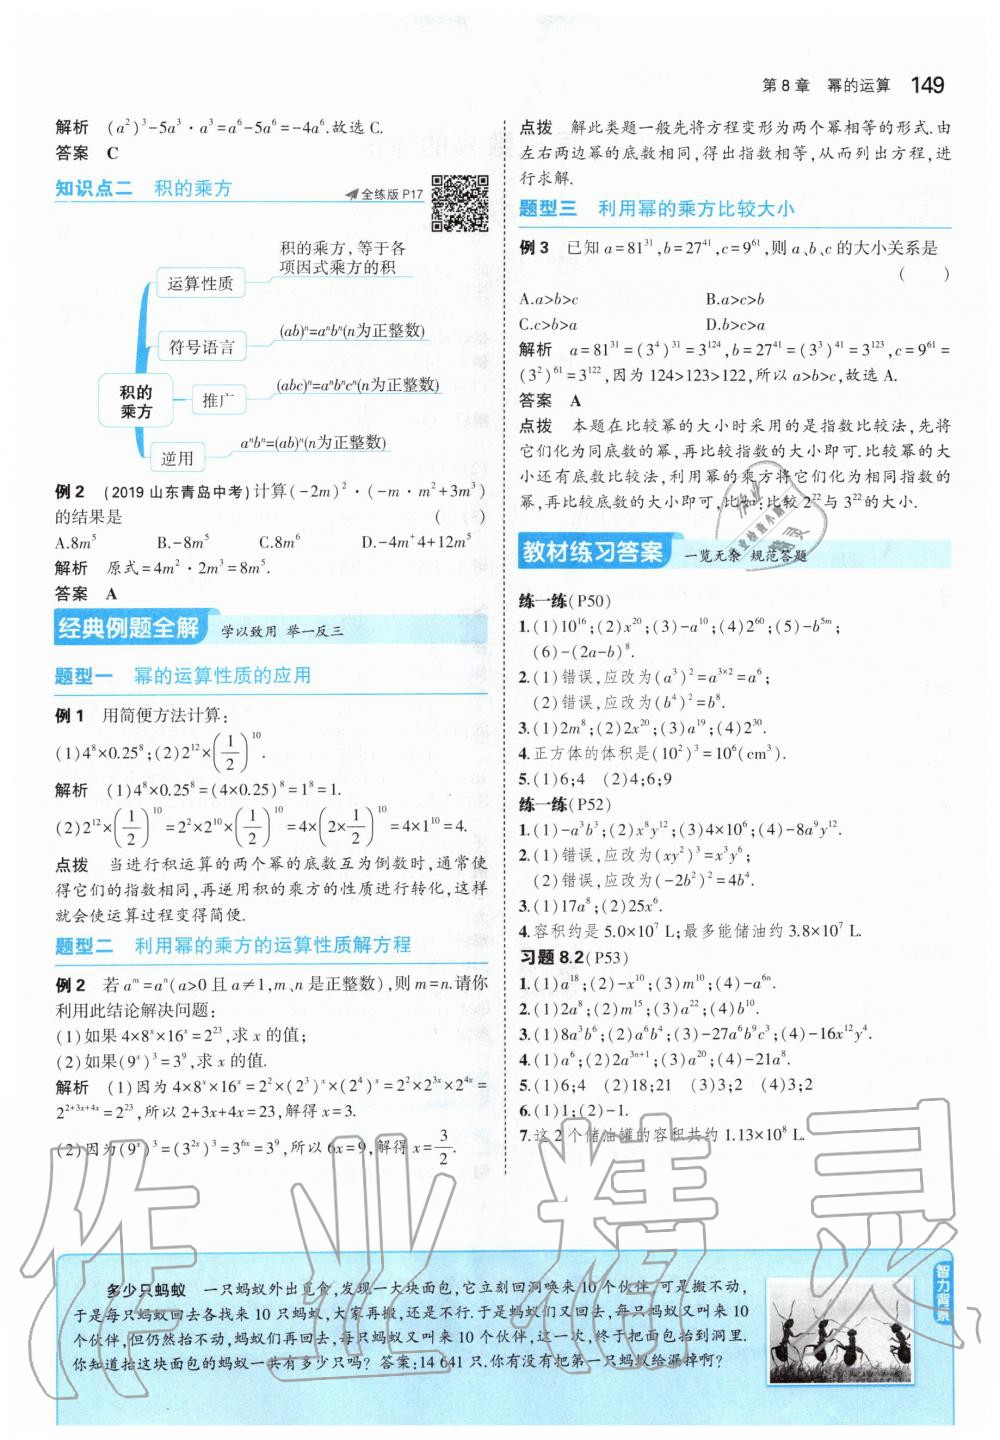 第8章 幂的运算 149
解析 (a²)³-5a³·a³=a⁶-5a⁶=-4a⁶.故选C.
答案 C
知识点二 积的乘方 全练版P17
积的乘方
运算性质
积的乘方,等于各
项因式乘方的积
符号语言
(ab)ⁿ=aⁿbⁿ(n为正整数)
推广
(abc)ⁿ=aⁿbⁿcⁿ(n为正整数)
逆用
aⁿbⁿ=(ab)ⁿ(n为正整数)
例2 (2019山东青岛中考)计算(-2m)²·(-m·m²+3m³)
的结果是 ( )
A.8m⁵ B.-8m⁵ C.8m⁶ D.-4m⁴+12m⁵
解析 原式=4m²·2m³=8m⁵.
答案 A
经典例题全解 学以致用 举一反三
题型一 幂的运算性质的应用
例1 用简便方法计算:
(1)4⁸×0.25⁸;(2)2¹²×(1/2)¹⁰.
解析 (1)4⁸×0.25⁸=(4×0.25)⁸=1⁸=1.
(2)2¹²×(1/2)¹⁰=2²×2¹⁰×(1/2)¹⁰=4×(2×1/2)¹⁰=4×1¹⁰=4.
点拨 当进行积运算的两个幂的底数互为倒数时,通常使
得它们的指数相同,再逆用积的乘方的性质进行转化,这样
就会使运算过程变得简便.
题型二 利用幂的乘方的运算性质解方程
例2 若aᵐ=aⁿ(a>0且a≠1,m、n是正整数),则m=n.请你
利用此结论解决问题:
(1)如果4×8ˣ×16ˣ=2²³,求x的值;
(2)如果(9ˣ)³=3⁹,求x的值.
解析 (1)因为4×8ˣ×16ˣ=2²×(2³)ˣ×(2⁴)ˣ=2²×2³ˣ×2⁴ˣ=
2²⁺³ˣ⁺⁴ˣ=2²³,所以2+3x+4x=23,解得x=3.
(2)因为(9ˣ)³=(3²ˣ)³=3⁶ˣ=3⁹,所以6x=9,解得x=3/2.
点拨 解此类题一般先将方程变形为两个幂相等的形式.由
左右两边幂的底数相同,得出指数相等,从而列出方程,进
行求解.
题型三 利用幂的乘方比较大小
例3 已知a=81³¹,b=27⁴¹,c=9⁶¹,则a、b、c的大小关系是
( )
A.a>b>c B.a>c>b
C.c>b>a D.b>c>a
解析 a=81³¹=(3⁴)³¹=3¹²⁴,b=27⁴¹=(3³)⁴¹=3¹²³,c=9⁶¹=
(3²)⁶¹=3¹²²,因为124>123>122,所以a>b>c,故选A.
答案 A
点拨 本题在比较幂的大小时采用的是指数比较法,先将
它们化为同底数的幂,再比较指数的大小即可.比较幂的大
小还有底数比较法,利用幂的乘方将它们化为相同指数的
幂,再比较底数的大小即可,比如:比较2²²与3²²的大小.
教材练习答案 一览无余 规范答题
练一练(P50)
1.(1)10¹⁶;(2)x²⁰;(3)-a¹⁰;(4)2⁶⁰;(5)-b⁵ᵐ;
(6)-(2a-b)⁸.
2.(1)错误,应改为(a³)²=a³ˣ²=a⁶;
(2)错误,应改为(b⁴)²=b⁸.
3.(1)2m⁸;(2)2x²⁰;(3)a¹⁹;(4)2³⁰.
4.正方体的体积是(10²)³=10⁶(cm³).
5.(1)6;4 (2)4;6;9
练一练(P52)
1.(1)-a³b³;(2)x⁸y¹²;(3)4×10⁶;(4)-8a⁹y¹².
2.(1)错误,应改为(xy²)³=x³y⁶;
(2)错误,应改为(-2b²)²=4b⁴.
3.(1)17a⁸;(2)25x⁶.
4.容积约是5.0×10⁷ L;最多能储油约3.8×10⁷ L.
习题8.2(P53)
1.(1)a¹⁸;(2)-x¹⁰;(3)m¹⁰;(4)-a⁶ⁿ.
2.(1)2a⁸;(2)m¹⁵;(3)a²²;(4)b¹⁰.
3.(1)8a³b⁶;(2)a⁶b⁴;(3)-27a⁶b⁹c³;(4)-16x¹²y⁴.
4.(1)a⁶;(2)2a³ⁿ⁺¹;(3)a²⁰;(4)-21a⁸.
5.(1)6;4 (2)18;21 (3)3;2 (4)3;2
6.(1)1;(2)-1.
7.这2个储油罐的容积共约1.13×10⁸ L.
智力背景
多少只蚂蚁 一只蚂蚁外出觅食,发现一大块面包,它立刻回洞唤来10个伙伴,可是搬不动,
于是每只蚂蚁回去各找来10只蚂蚁,大家再搬,还是不行.于是蚂蚁们又回去,每只蚂蚁又叫来10
个伙伴,但仍然抬不动,蚂蚁们再回去,每只蚂蚁又叫来10个伙伴,这一次,终于把面包抬到洞里.
你知道抬这块面包的蚂蚁一共有多少只吗? 答案:14 641只.你有没有把第一只蚂蚁给漏掉啊?
作业精灵